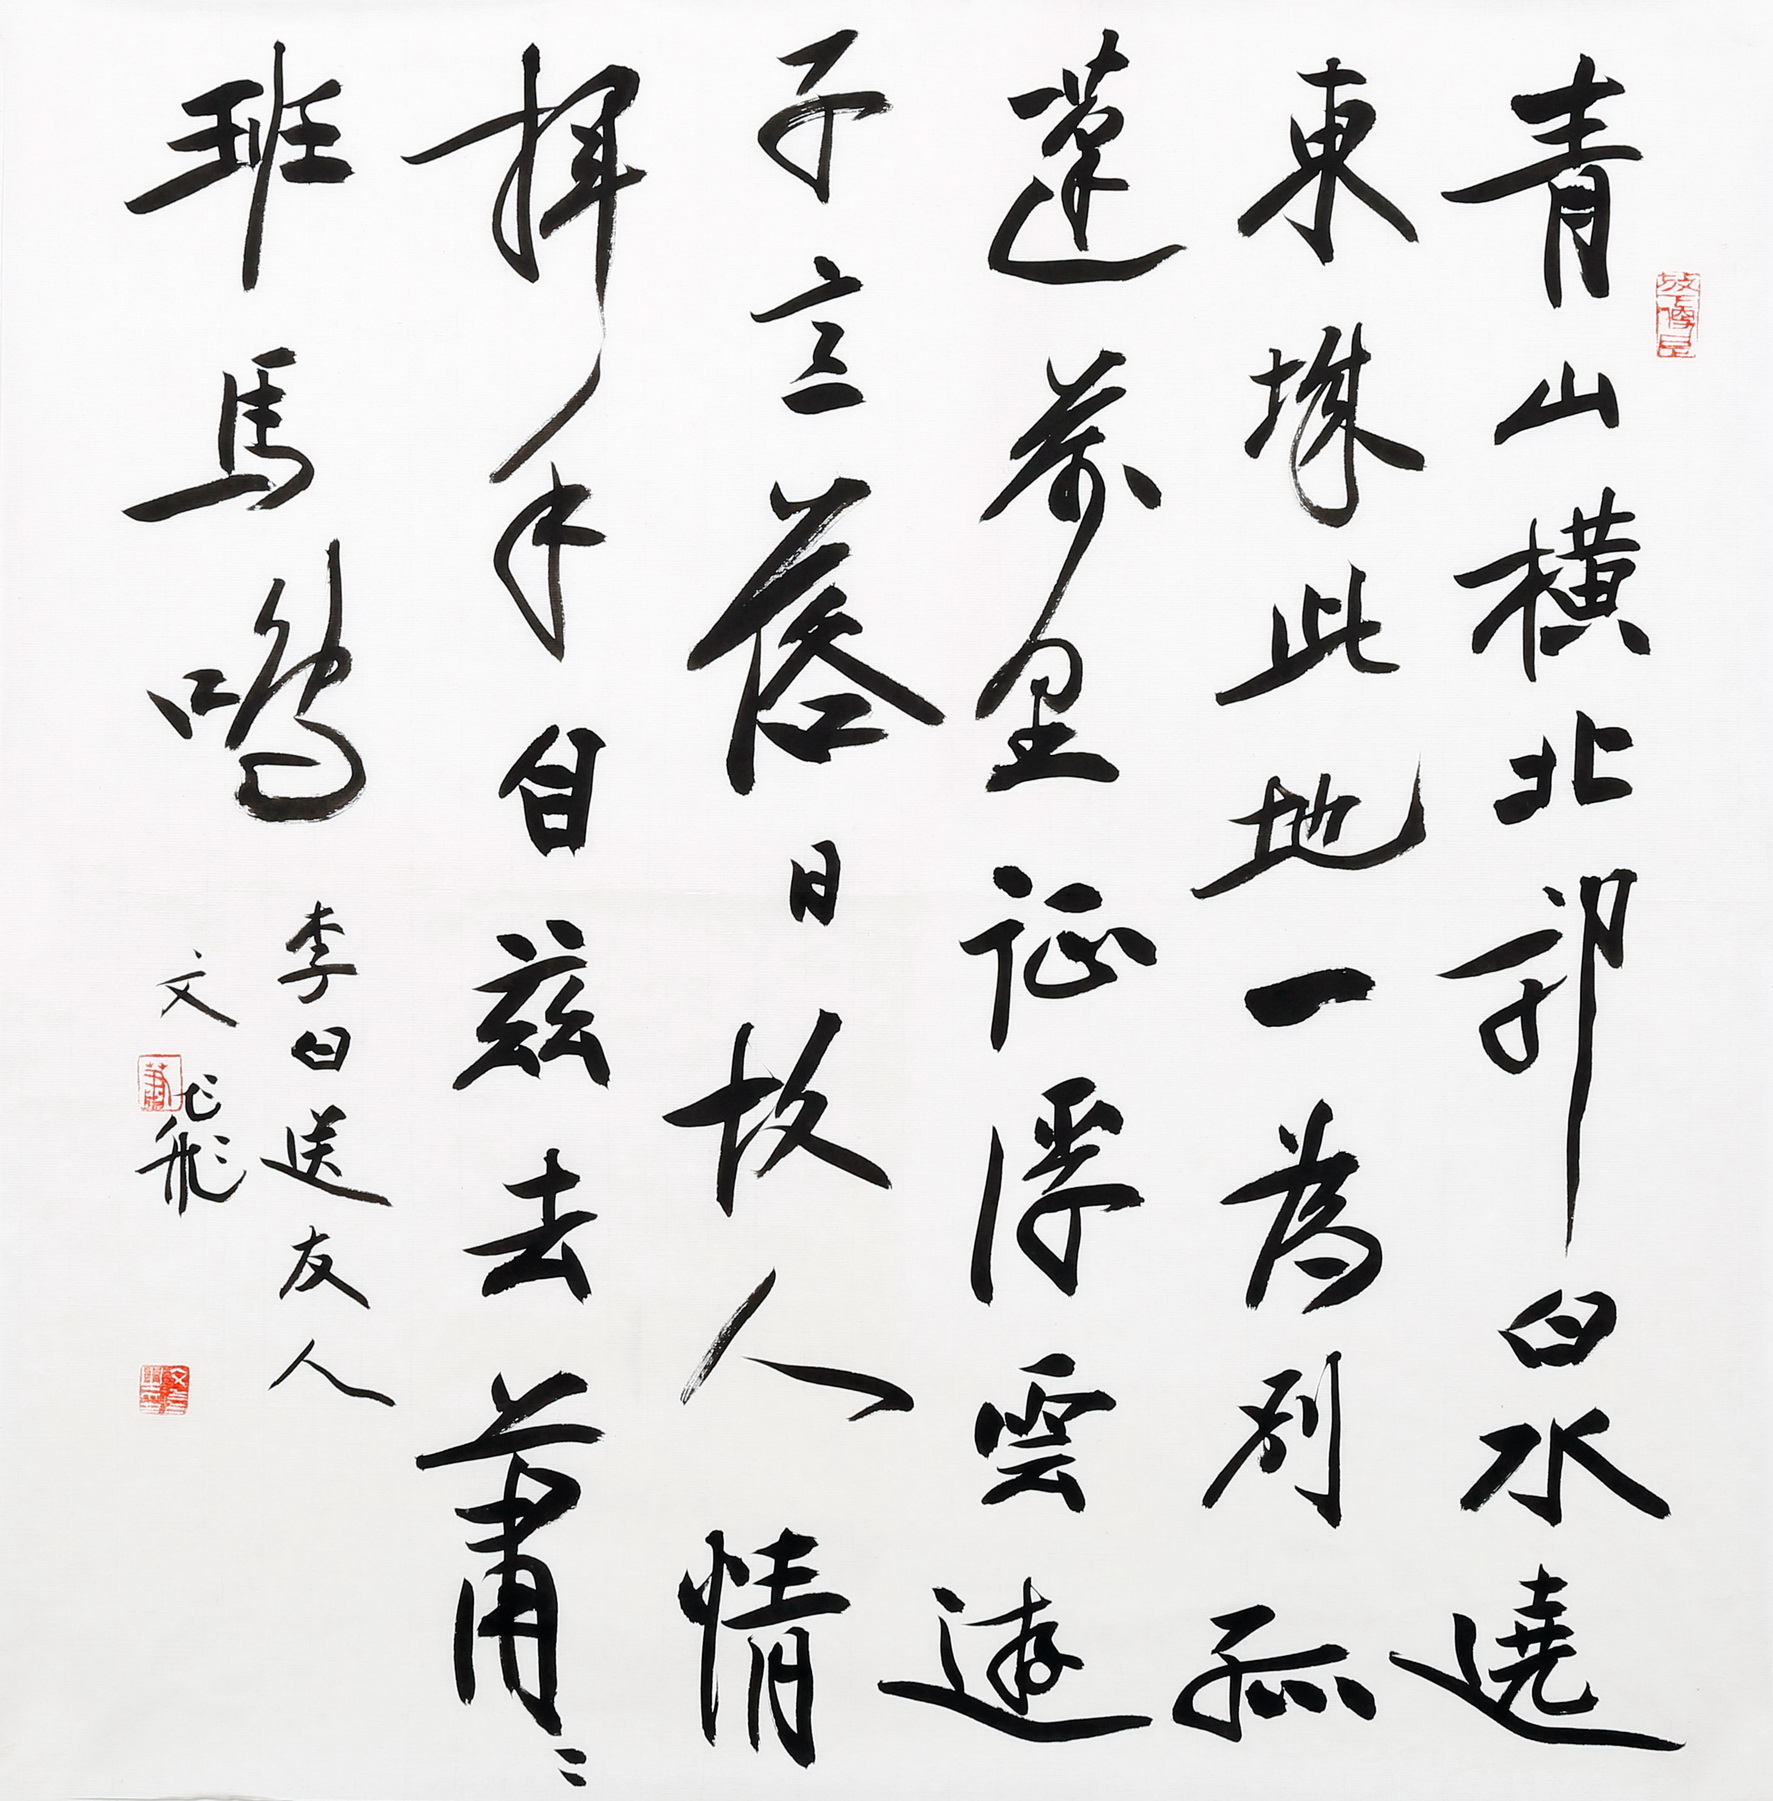 青山橫北郭白水遶
東城此地一為別孤
蓬萬里征浮雲遊
子意落日故人情
揮手自茲去蕭〻
班馬鳴
李白送友人
文飛
蕭